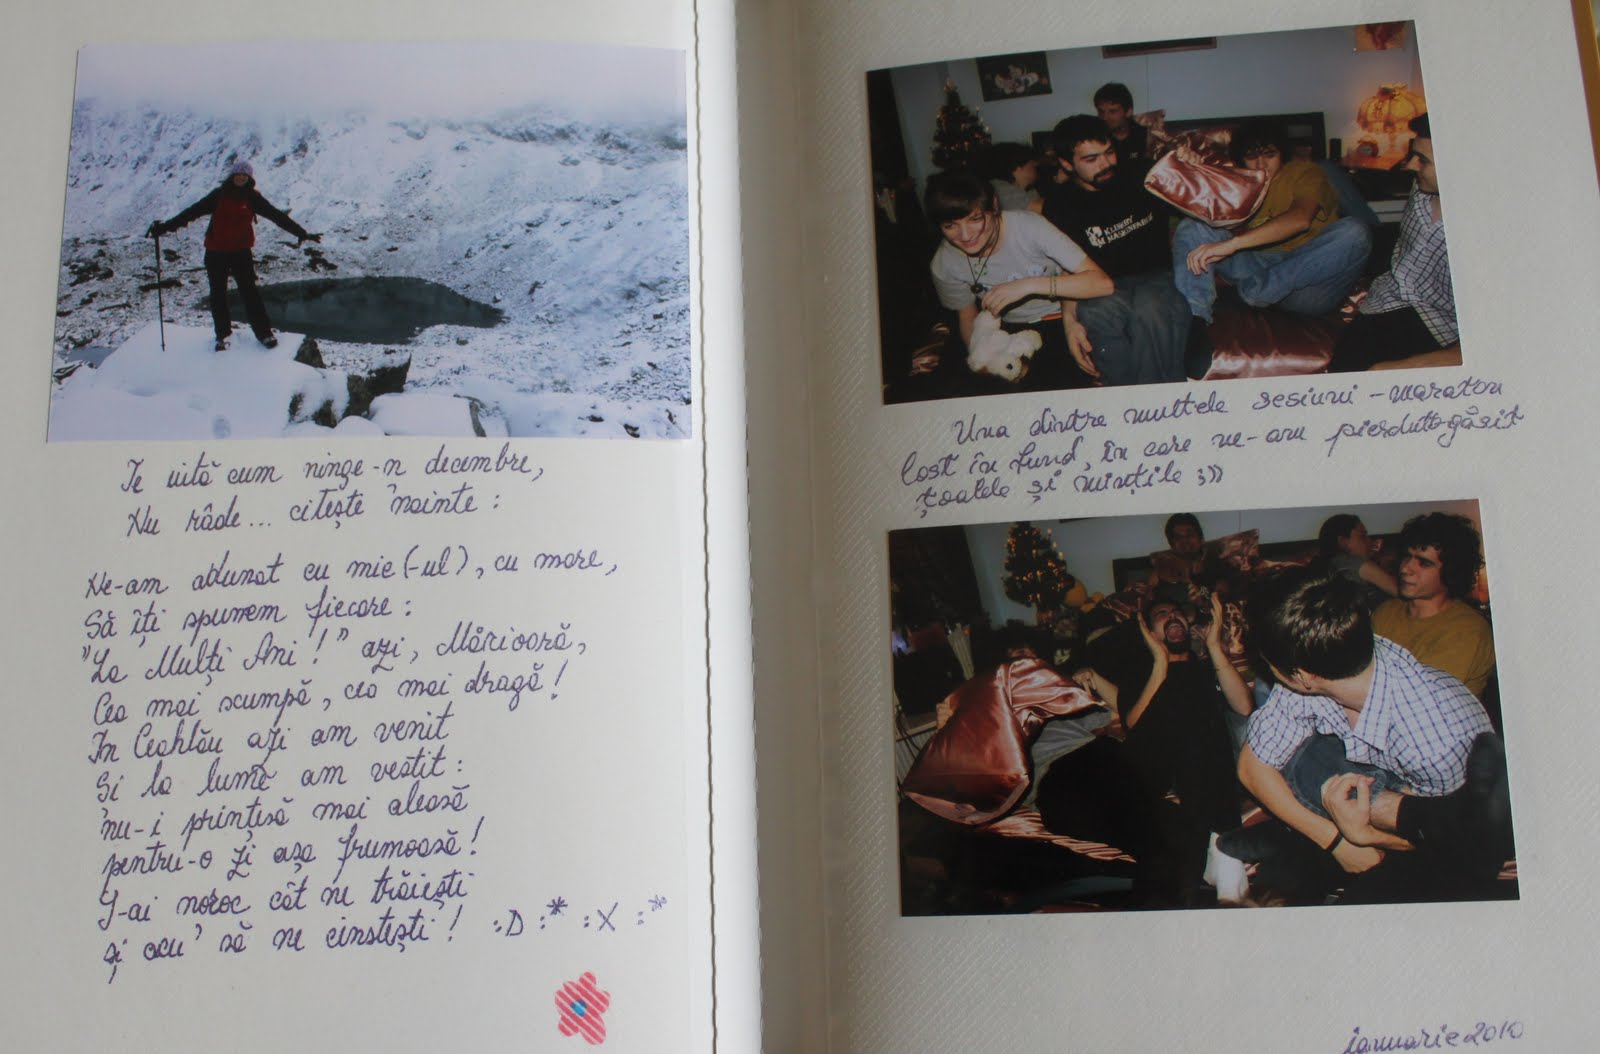 Te uită cum ninge-n decembre,
Nu râde... citește 'nainte :
Ne-am adunat cu mic(-ul), cu mare,
Să îți spunem fiecare :
"La Mulți Ani !" azi, Mărioară,
Cea mai scumpă, cea mai dragă !
În Ceahlău azi am venit
Și la lume am vestit :
'nu-i prințesă mai aleasă
pentru-o zi așa frumoasă !
Ș-ai noroc cât ne trăiești
și acu' să ne cinstești ! :D :* :X :*
KLIBERY
MASKINFABRIK
Una dintre multele sesiuni - maraton
Cost în fund, în care ne-am pierdut-găsit
țoalele și mințile :))
ianuarie 2010